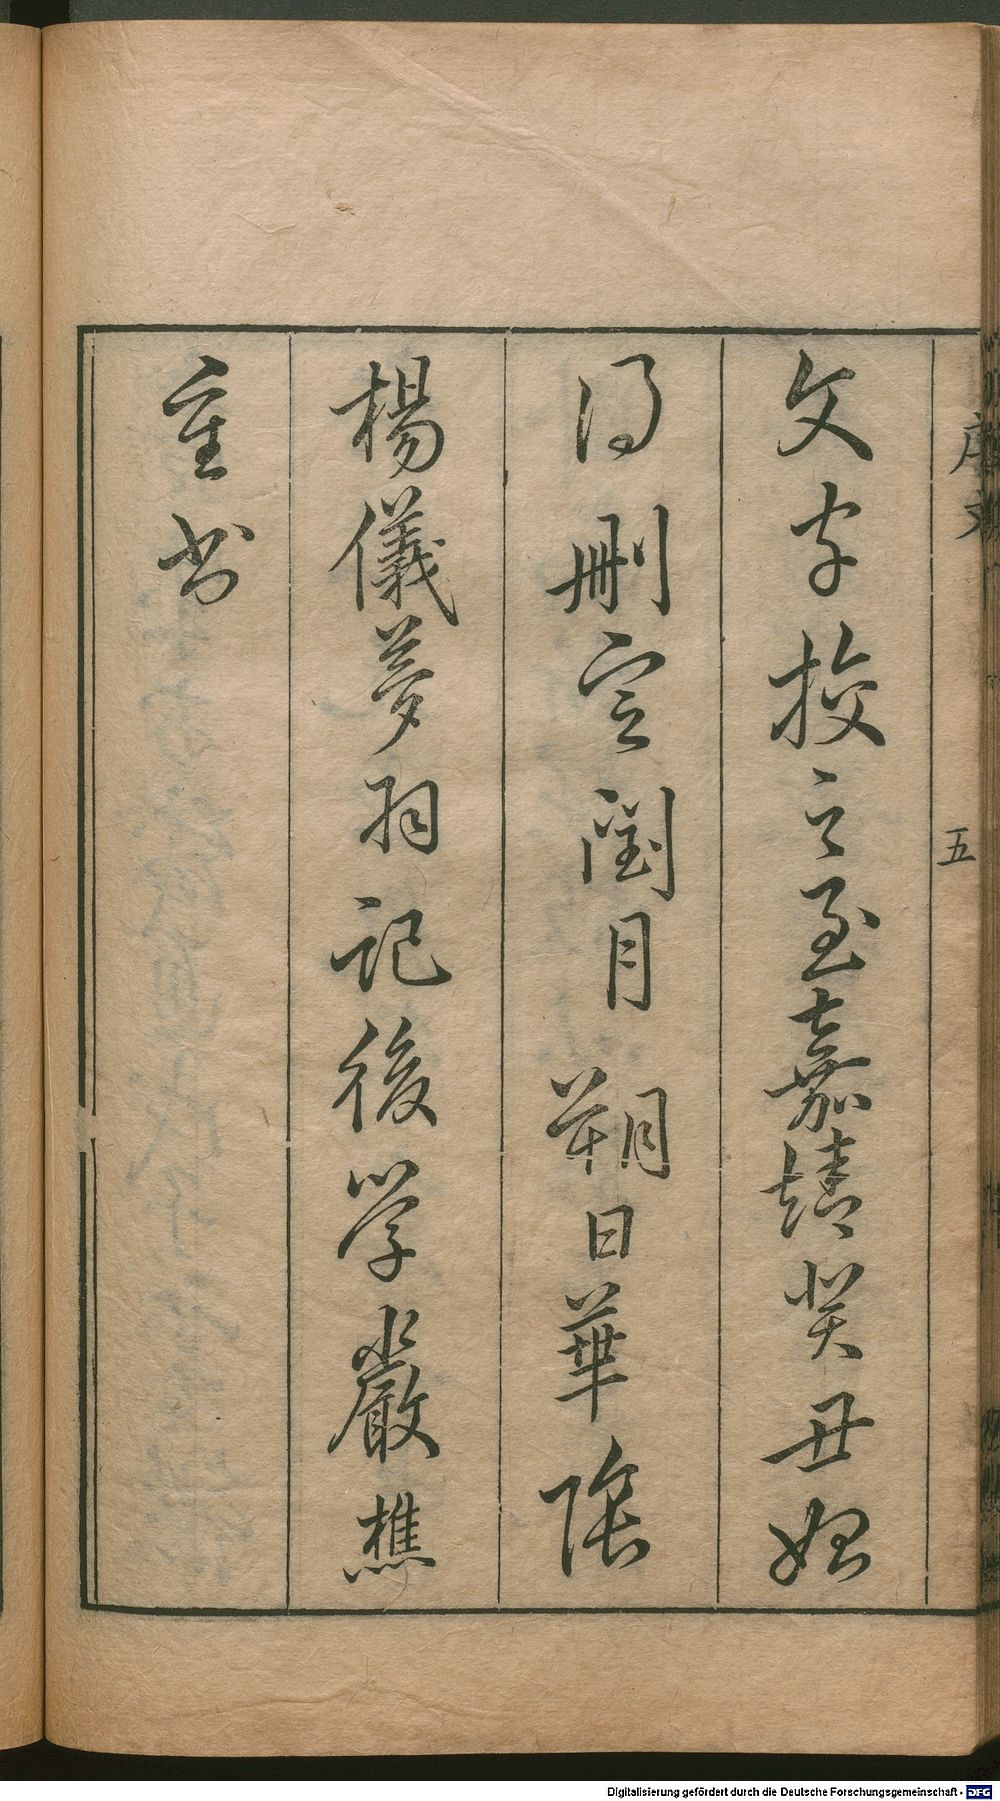 序文
五
文字挍之至嘉靖癸丑始
得刪定閏月朔日華陰
楊儀夢羽記後学嚴樵
重书
Digitalisierung gefördert durch die Deutsche Forschungsgemeinschaft - DFG